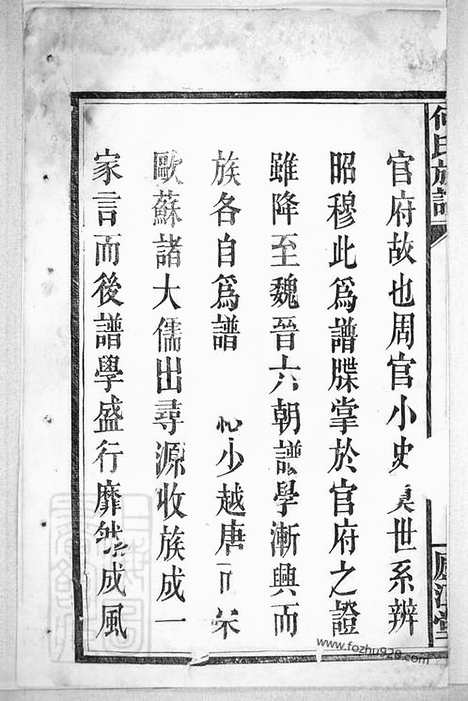 何氏族譜
官府故也周官小史奠世系辨
昭穆此為譜牒掌於官府之證
雖降至魏晉六朝譜學漸興而
族各自為譜 少越唐 宋
歐蘇諸大儒出尋源收族成一
家言而後譜學盛行靡然成風
廬江堂
www.fozhu920.com